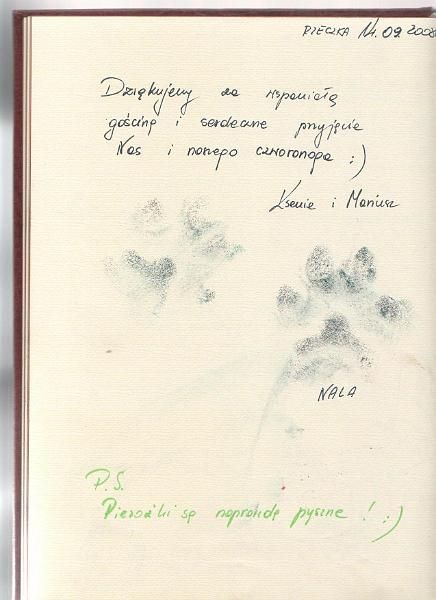 PIECZKA 14.09.2008
Dziękujemy za wspaniałą
gościnę i serdeczne przyjęcie
Nas i naszego czworonoga :)
Ksenia i Mariusz
NALA
P.S.
Pierożki są naprawdę pyszne ! :)